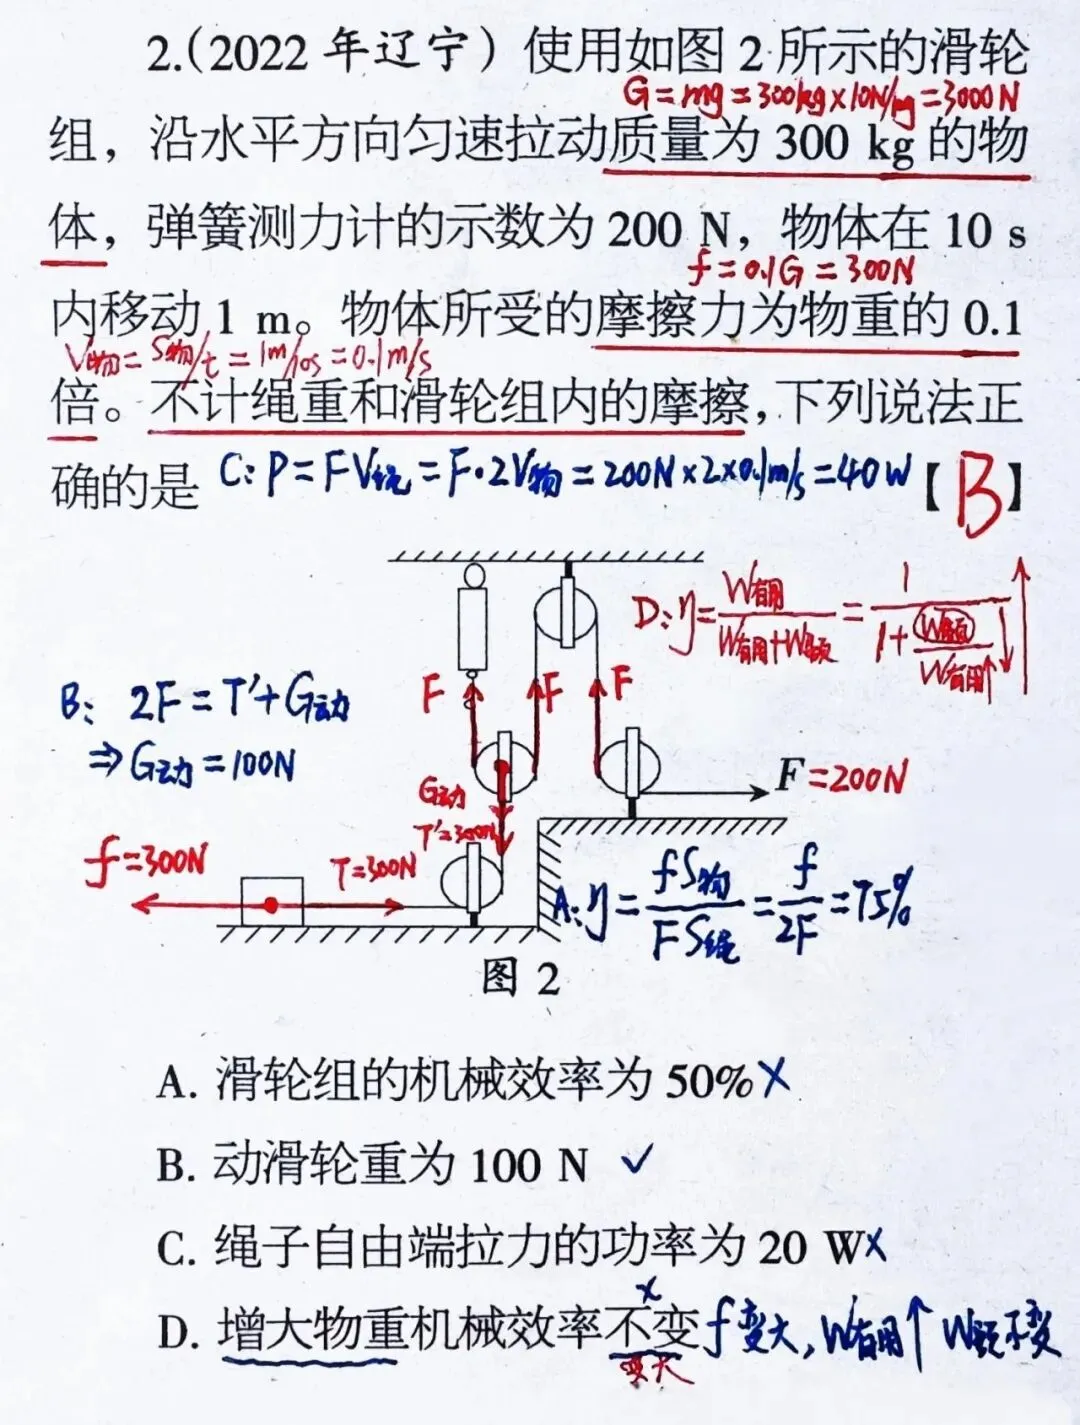 2.(2022 年辽宁) 使用如图 2 所示的滑轮
G=mg=300kg×10N/kg=3000N
组，沿水平方向匀速拉动质量为 300 kg 的物
体，弹簧测力计的示数为 200 N，物体在 10 s
f=0.1G=300N
内移动 1 m。物体所受的摩擦力为物重的 0.1
V物=S物/t=1m/10s=0.1m/s
倍。不计绳重和滑轮组内的摩擦，下列说法正
确的是 C: P=FV绳=F·2V物=200N×2×0.1m/s=40W 【B】
D: η=W有用/(W有用+W额)=1/(1+W额/W有用↑)↓ ↑
B: 2F=T′+G动
⇒G动=100N
F F F
G动
T′=300N
F=200N
f=300N T=300N
A: η=fS物/FS绳=f/2F=75%
图 2
A. 滑轮组的机械效率为 50%×
B. 动滑轮重为 100 N ✓
C. 绳子自由端拉力的功率为 20 W×
×
D. 增大物重机械效率不变 f变大，W有用↑ W额不变
变大